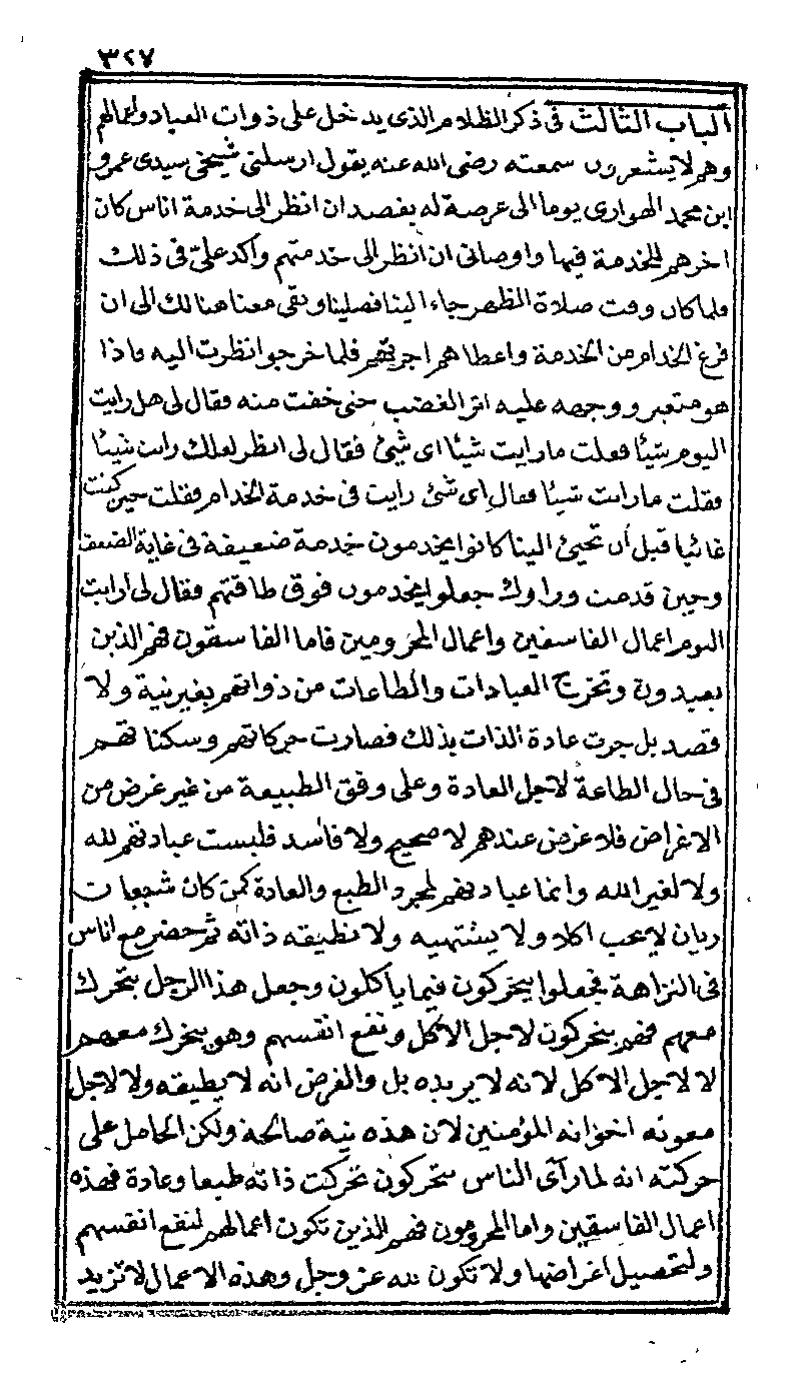 ٣٢٧
الباب الثالث في ذكر الظلام الذى يدخل على ذوات العباد واعمالهم
وهم لا يشعرون سمعته رضى الله عنه يقول ارسلنى شيخى سيدى عمرو
ابن محمد الهوارى يوما الى عرصة له يقصد ان انظر الى خدمة اناس كان
اخرهم للخدمة فيها واوصانى ان انظر الى خدمتهم واكد علىّ فى ذلك
فلما كان وقت صلاة الظهر جاء الينا فصلينا وبقى معنا هنالك الى ان
فرغ الخدام من الخدمة واعطاهم اجرتهم فلما خرجوا نظرت اليه فاذا
هو متغير ووجهه عليه اثر الغضب حتى خفت منه فقال لى هل رايت
اليوم شيئا فقلت ما رايت شيئا اى شئ فقال لى انظر لعلك رايت شيئا
فقلت ما رايت شيئا فقال اى شئ رايت فى خدمة الخدام فقلت حين كنت
غائبا قبل ان تجيئ الينا كانوا يخدمون خدمة ضعيفة فى غاية الضعف
وحين قدمت وراوك جعلوا يخدمون فوق طاقتهم فقال لى ارايت
اليوم اعمال الفاسقين واعمال المحرومين فاما الفاسقون فهم الذين
يعبدون وتخرج العبادات والطاعات من ذواتهم بغير نية ولا
قصد بل جرت عادة الذات بذلك فصارت حركاتهم وسكناتهم
فى حال الطاعة لاجل العادة وعلى وفق الطبيعة من غير غرض من
الاغراض فلا غرض عندهم لا صحيح ولا فاسد فليست عبادتهم لله
ولا لغير الله وانما عبادتهم لمجرد الطبع والعادة كمن كان شبعان
ريان لا يحب اكلا ولا يشتهيه ولا تطيقه ذاته ثم حضر مع اناس
فى النزاهة فجعلوا يتحركون فيما ياكلون وجعل هذا الرجل يتحرك
معهم فهم يتحركون لاجل الاكل ونفع انفسهم وهو يتحرك معهم
لا لاجل الاكل لانه لا يريده بل والفرض انه لا يطيقه ولا لاجل
معونة اخوانه المؤمنين لان هذه نية صالحة ولكن الحامل على
حركته انه لما رآى الناس يتحركون تحركت ذاته طبعا وعادة فهذه
اعمال الفاسقين واما المحرومون فهم الذين تكون اعمالهم لنفع انفسهم
ولتحصيل اغراضها ولا تكون لله عز وجل وهذه الاعمال لا تزيد